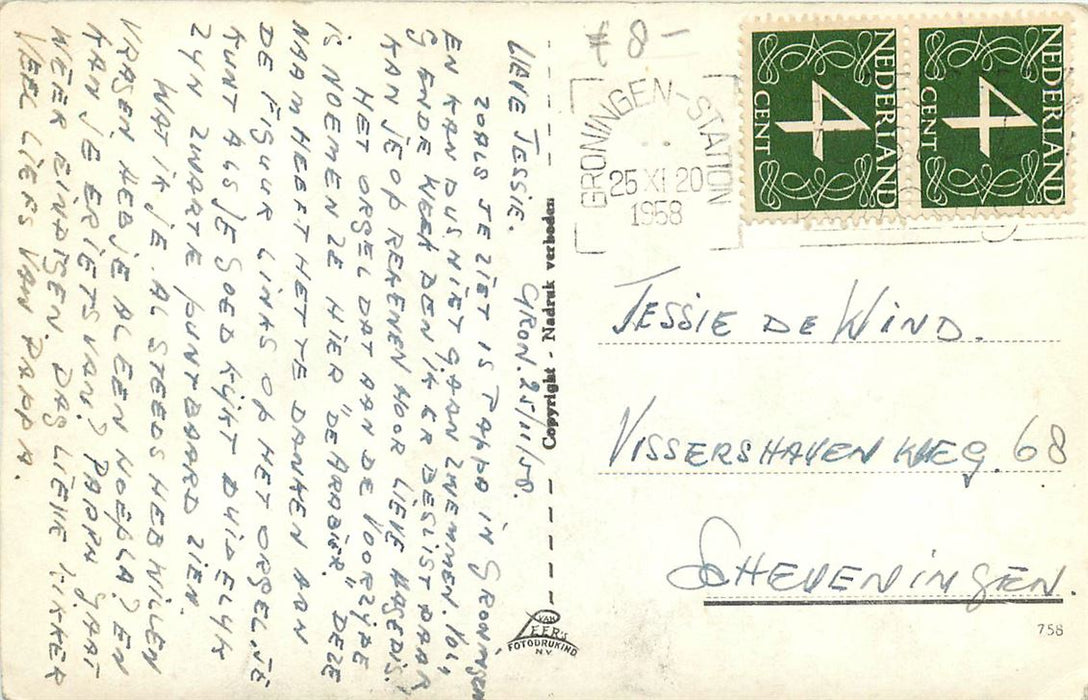 LIEVE JESSIE. GRON. 25/11/58.
ZOALS JE ZIET IS PAPPA IN GRONINGEN
EN KAN DUS NIET GAAN ZWEMMEN. VOL-
GENDE WEEK BEN IK ER BESLIST DAAR
KAN JE OP REKENEN HOOR LIEVE HAGEDIS.
HET ORGEL DAT AAN DE VOORZIJDE
IS NOEMEN ZE HIER "DE ARABIER." DEZE
NAAM HEEFT HET TE DANKEN AAN
DE FIGUUR LINKS OP HET ORGEL. JE
KUNT ALS JE GOED KIJKT DUIDELIJK
ZIJN ZWARTE PUNTBAARD ZIEN.
WAT IK JE AL STEEDS HEB WILLEN
VRAGEN HEB JE AL EEN
KAN JE ER IETS VAN? PAPPA GAAT
WEER EINDIGEN. DAG LIEVE KIKKER
VEEL LIEFS VAN PAPPA.
Copyright - Nadruk verboden
VAN LEER'S
FOTODRUKIND
N.V.
- 8 -
GRONINGEN-STATION
25 XI 20
1958
NEDERLAND
4
CENT
NEDERLAND
4
CENT
JESSIE DE WIND.
VISSERSHAVENWEG. 68
SCHEVENINGEN.
758